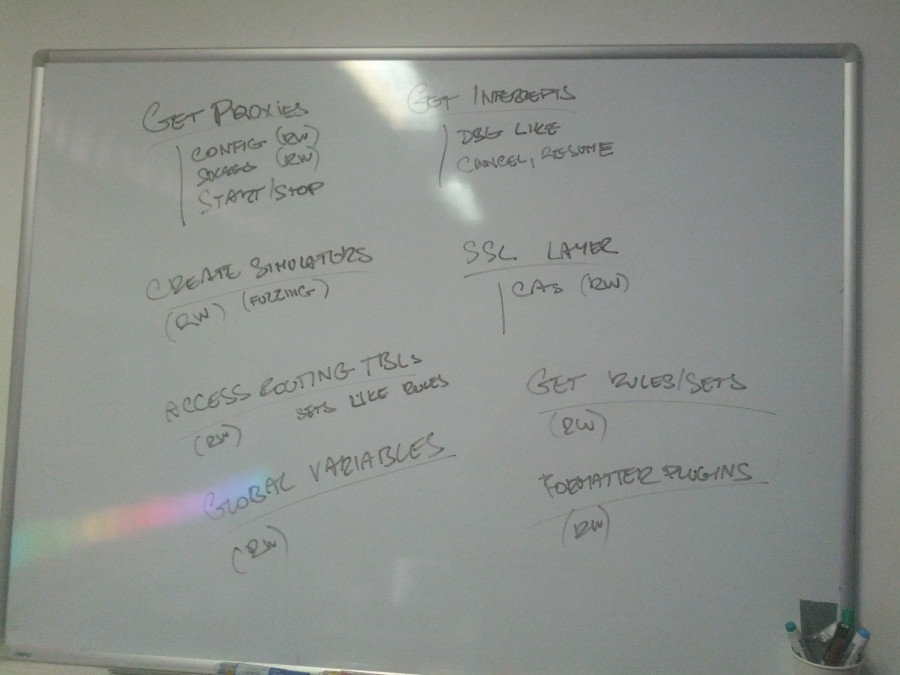 GET PROXIES
CONFIG (RW)
(RW)
START/STOP
GET INTERCEPTS
DBG LIKE
CANCEL, RESUME
CREATE SIMULATORS
(RW) (FUZZING)
SSL LAYER
CAS (RW)
ACCESS ROUTING TBLS
(RW) SETS LIKE RULES
GET RULES/SETS
(RW)
GLOBAL VARIABLES
(RW)
FORMATTER PLUGINS
(RW)